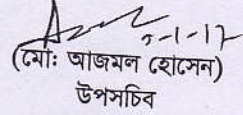 ৯-১-১৭
(মো: আজমল হোসেন)
উপসচিব